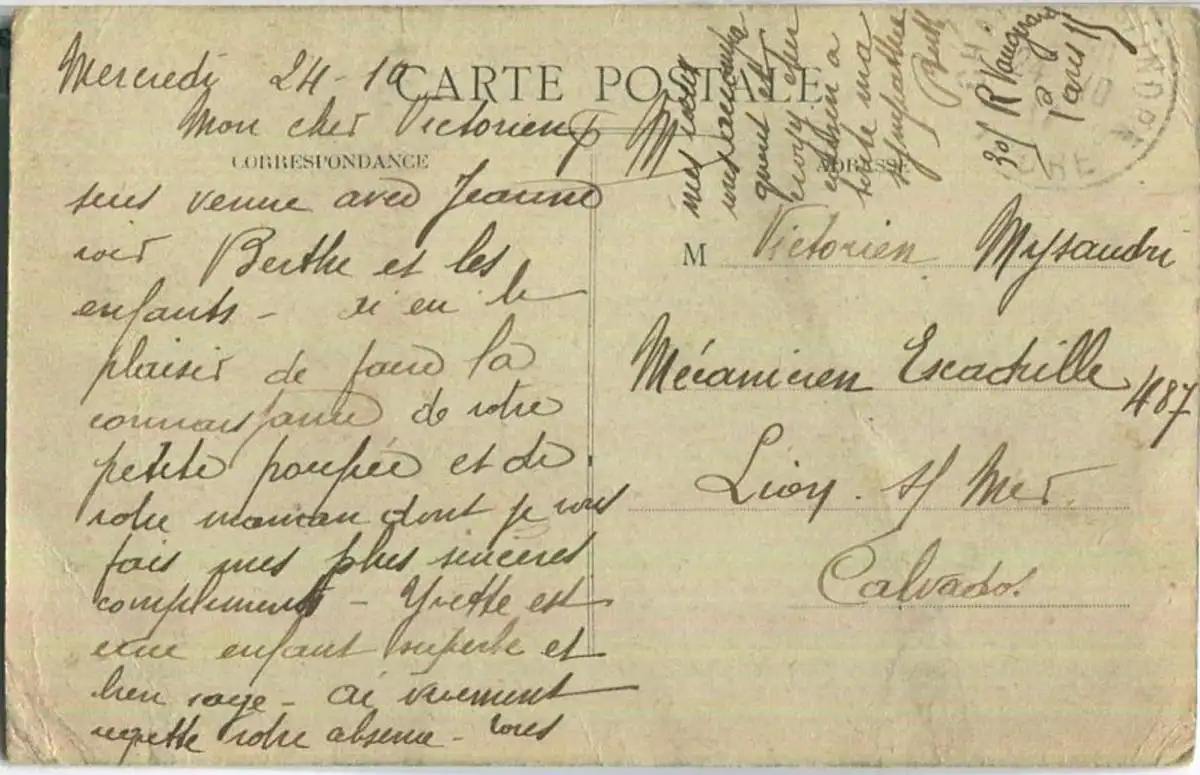 Mercredi 24-10
CARTE POSTALE
Mon cher Victorien
CORRESPONDANCE
suis venue avec Jeanne
voir Berthe et les
enfants - ai eu le
plaisir de faire la
connaissance de votre
petite poupée et de
votre maman dont je vous
fais mes plus sincères
compliments - Yvette est
une enfant superbe et
bien sage - ai vraiment
regretté votre absence - tous
mes
quant et
croyez cher
à
toute ma
sympathie
Berthe
301 R Vaugirard
Paris 15
ADRESSE
M Victorien Mysandri
Mécanicien Escadrille
487
Lion s/ Mer
Calvados.